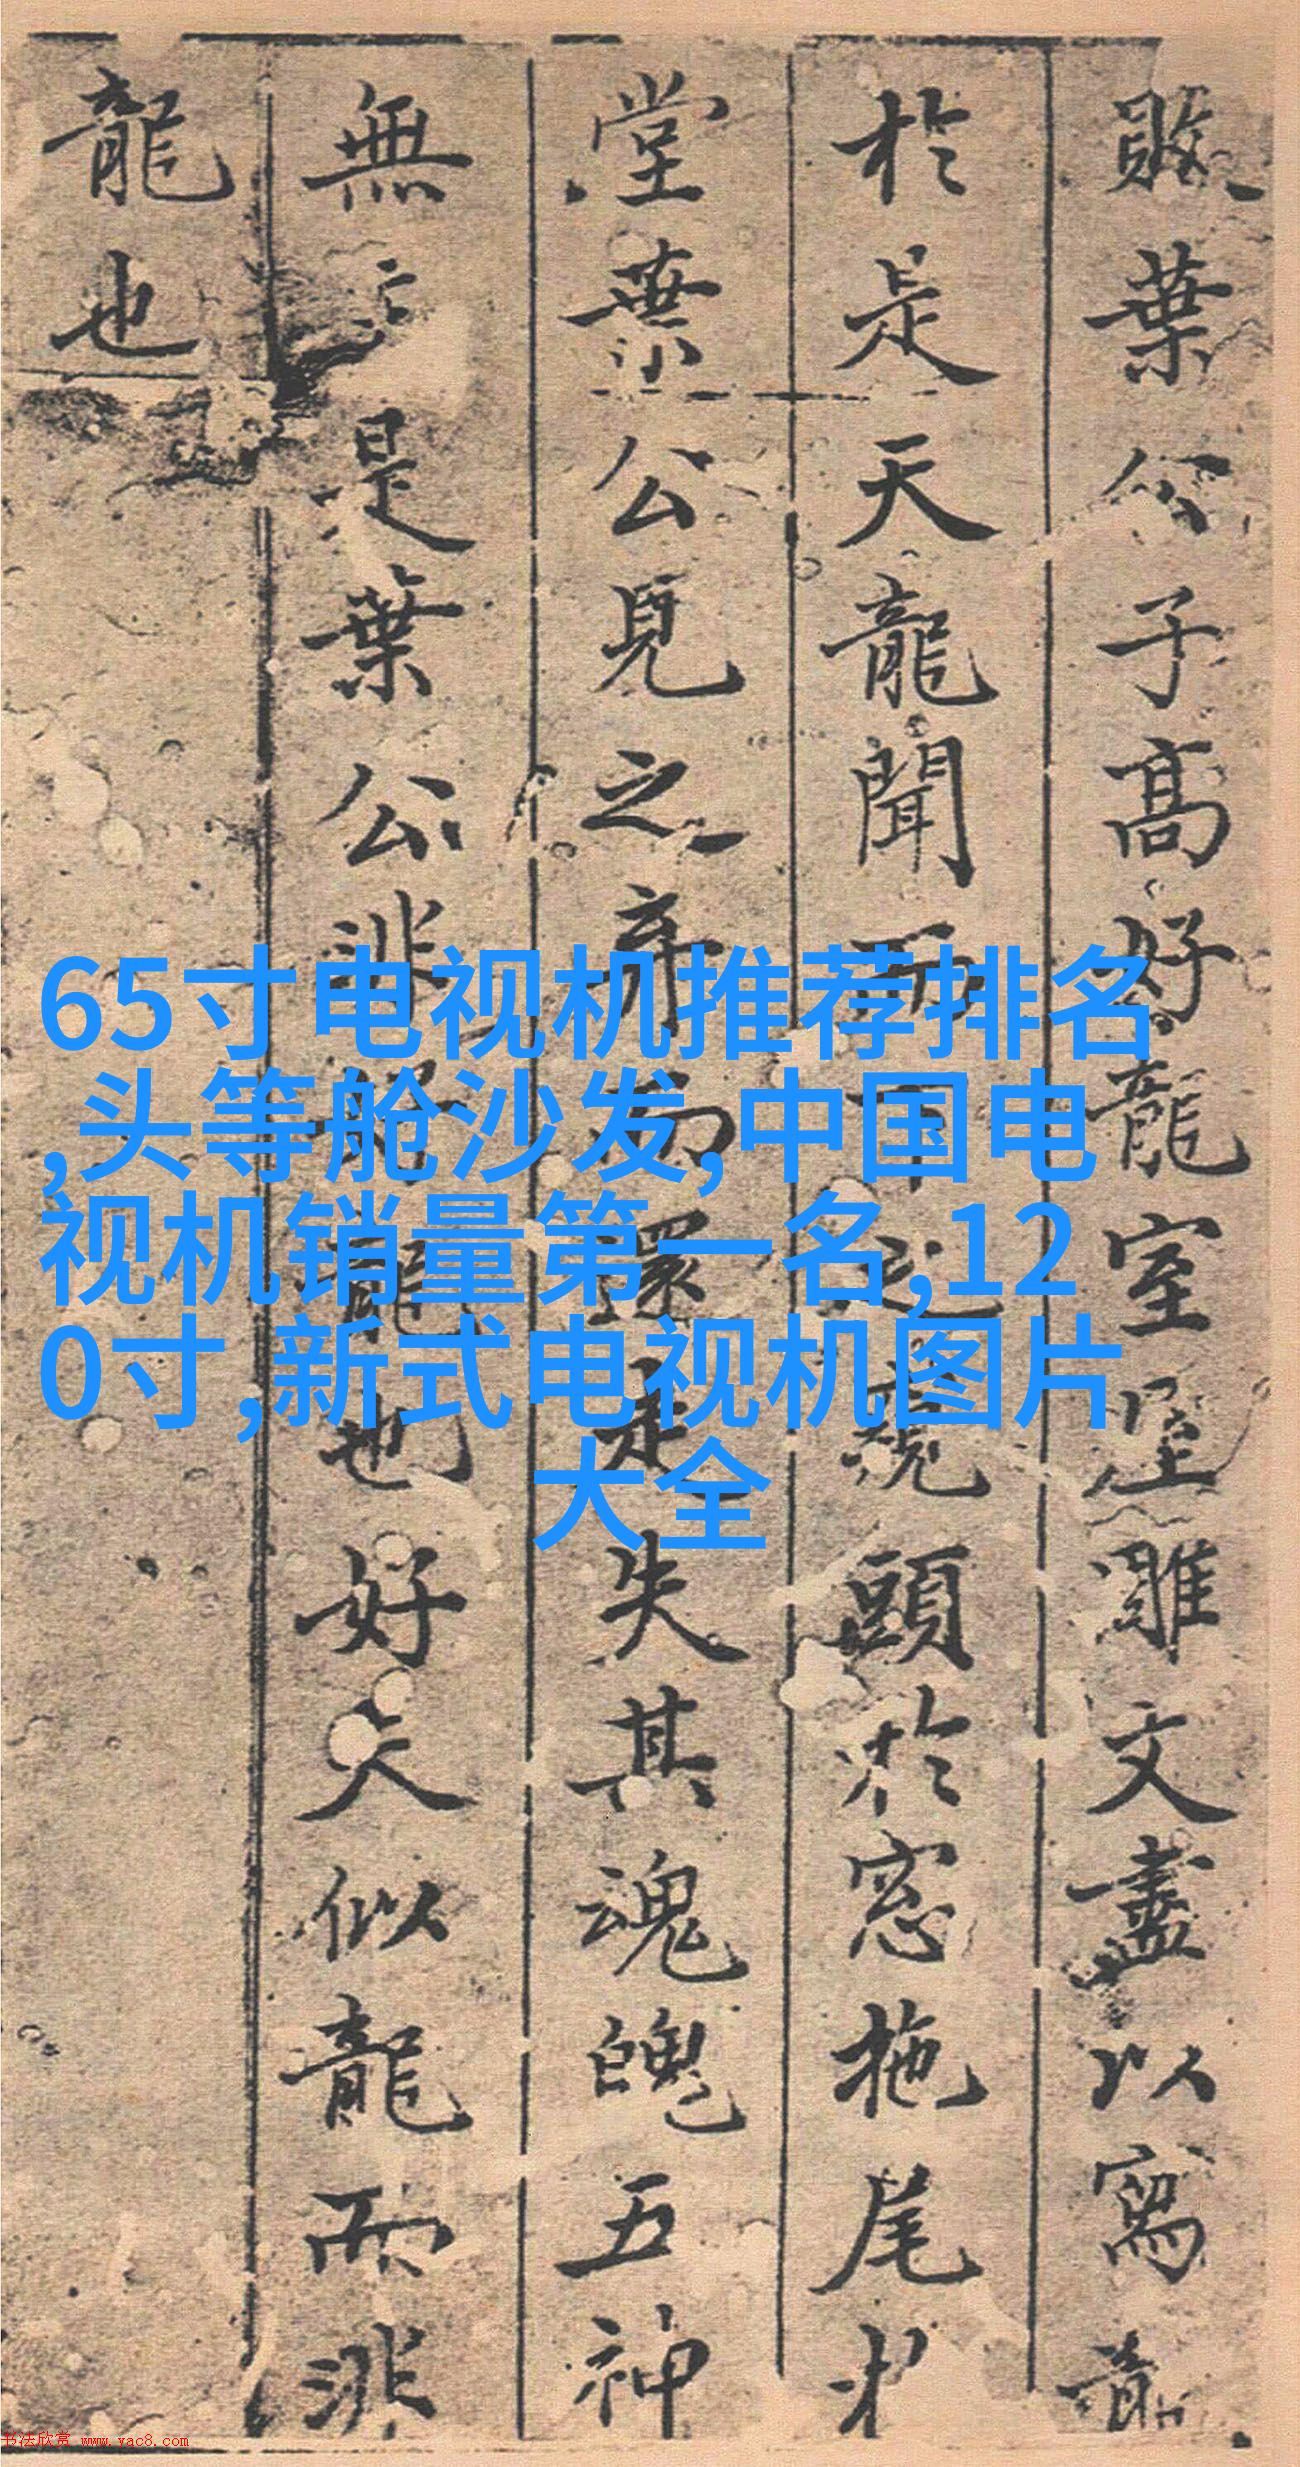 敗葉公子高好龍室屋雕文盡以寫龍
於是天龍聞而下之窺頭於窓拖尾於
堂葉公見之弃而還走失其魂魄五神
無主是葉公非好龍也好夫似龍而非
龍也
65寸电视机推荐排名
,头等舱沙发,中国电
视机销量第一名,12
0寸,新式电视机图片
大全
书法欣赏 www.yac8.com